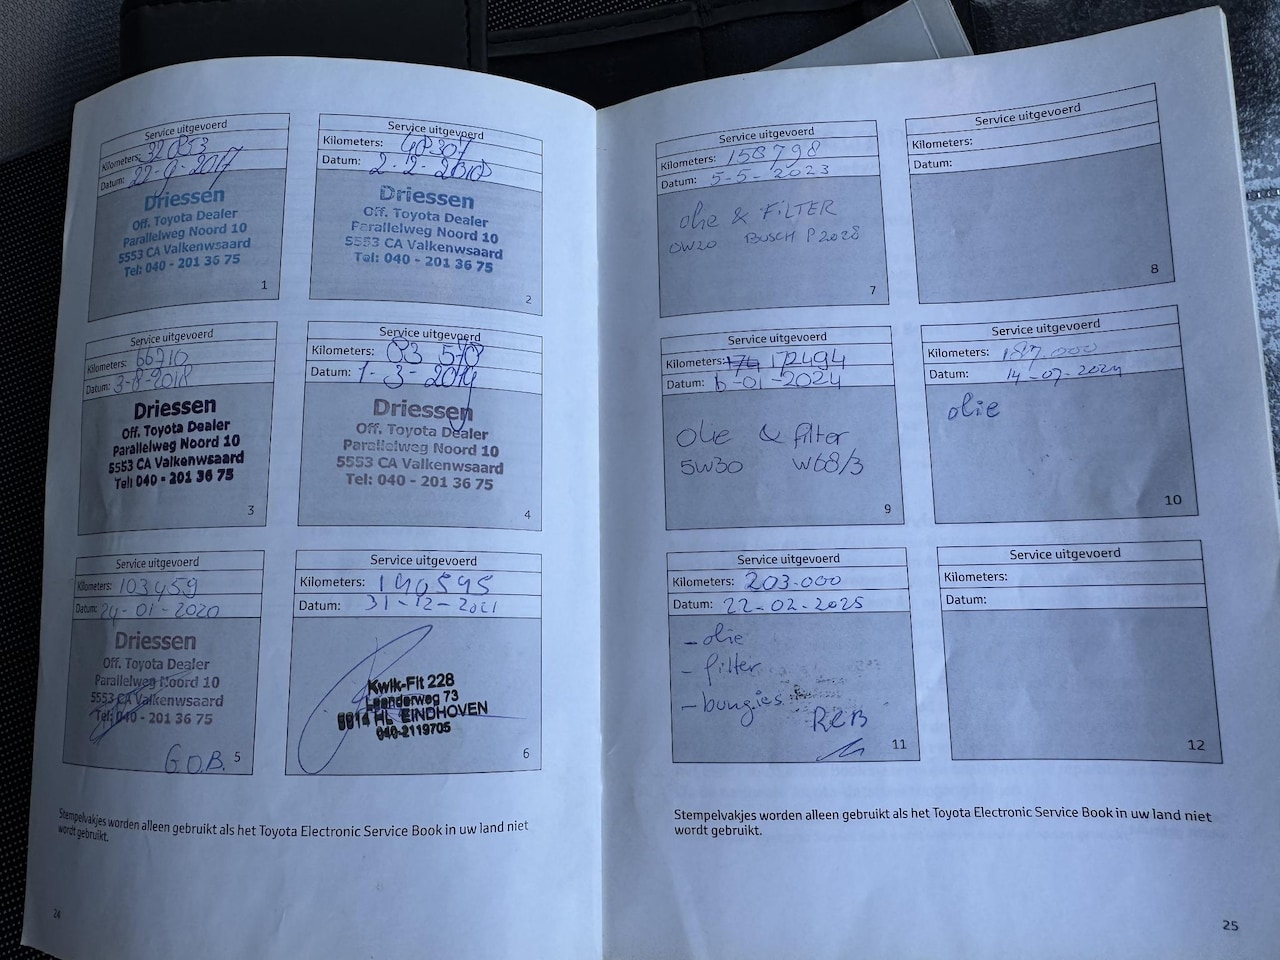 Service uitgevoerd
Kilometers: 32853
Datum: 22-9-2017
Driessen
Off. Toyota Dealer
Parallelweg Noord 10
5553 CA Valkenwsaard
Tel: 040 - 201 36 75
1
Service uitgevoerd
Kilometers: 48307
Datum: 2-12-2018
Driessen
Off. Toyota Dealer
Parallelweg Noord 10
5553 CA Valkenwsaard
Tel: 040 - 201 36 75
2
Service uitgevoerd
Kilometers: 66710
Datum: 3-8-2018
Driessen
Off. Toyota Dealer
Parallelweg Noord 10
5553 CA Valkenwsaard
Tel: 040 - 201 36 75
3
Service uitgevoerd
Kilometers: 83 578
Datum: 1-3-2019
Driessen
Off. Toyota Dealer
Parallelweg Noord 10
5553 CA Valkenwsaard
Tel: 040 - 201 36 75
4
Service uitgevoerd
Kilometers: 103459
Datum: 24-01-2020
Driessen
Off. Toyota Dealer
Parallelweg Noord 10
5553 CA Valkenwsaard
Tel: 040 - 201 36 75
G.O.B.
5
Service uitgevoerd
Kilometers: 140595
Datum: 31-12-2021
Kwik-Fit 228
Leenderweg 73
5614 HL EINDHOVEN
040-2119705
6
Stempelvakjes worden alleen gebruikt als het Toyota Electronic Service Book in uw land niet
wordt gebruikt.
24
Service uitgevoerd
Kilometers: 158798
Datum: 5-5-2023
olie & FILTER
0W20 BUSCH P2028
7
Service uitgevoerd
Kilometers:
Datum:
8
Service uitgevoerd
Kilometers: 174 172494
Datum: 6-01-2024
Olie & filter
5W30 W68/3
9
Service uitgevoerd
Kilometers: 187.000
Datum: 14-07-2024
olie
10
Service uitgevoerd
Kilometers: 203.000
Datum: 22-02-2025
- olie
- filter
- bougies
RCB
11
Service uitgevoerd
Kilometers:
Datum:
12
Stempelvakjes worden alleen gebruikt als het Toyota Electronic Service Book in uw land niet
wordt gebruikt.
25